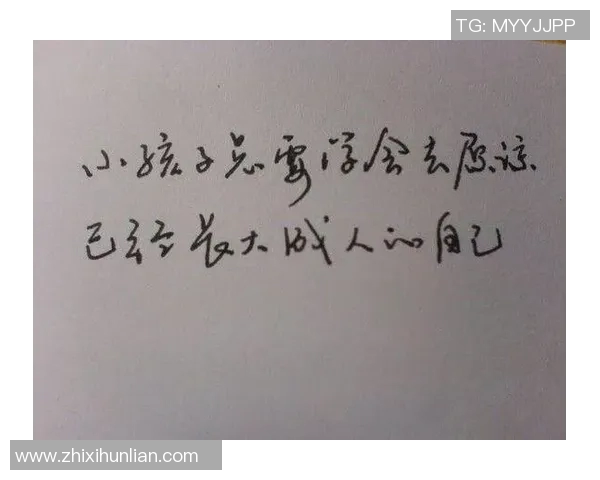 TG: MYYJJPP
小孩子只要学会去原谅
已经长大成人的自己
www.zhixihunlian.com